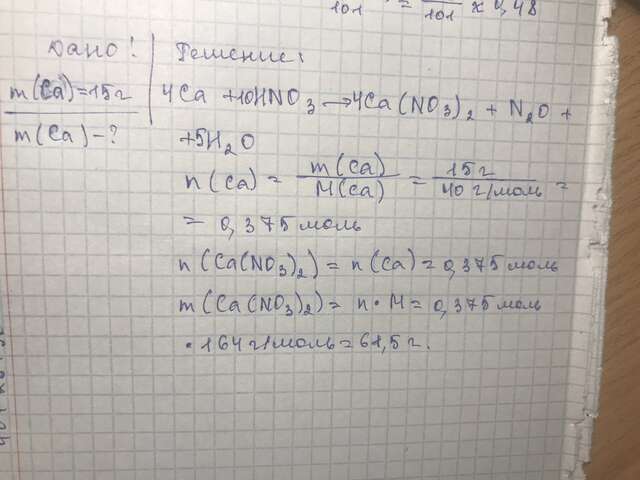 101 = 101 x 0,48
Дано! Решение:
m(Ca)=15г 4Ca +10HNO3 →4Ca(NO3)2 + N2O +
m(Ca)-? +5H2O
n(Ca) = m(Ca) / M(Ca) = 15г / 40 г/моль =
= 0,375 моль
n(Ca(NO3)2) = n(Ca) = 0,375 моль
m(Ca(NO3)2) = n·M = 0,375 моль
·164 г/моль = 61,5 г.